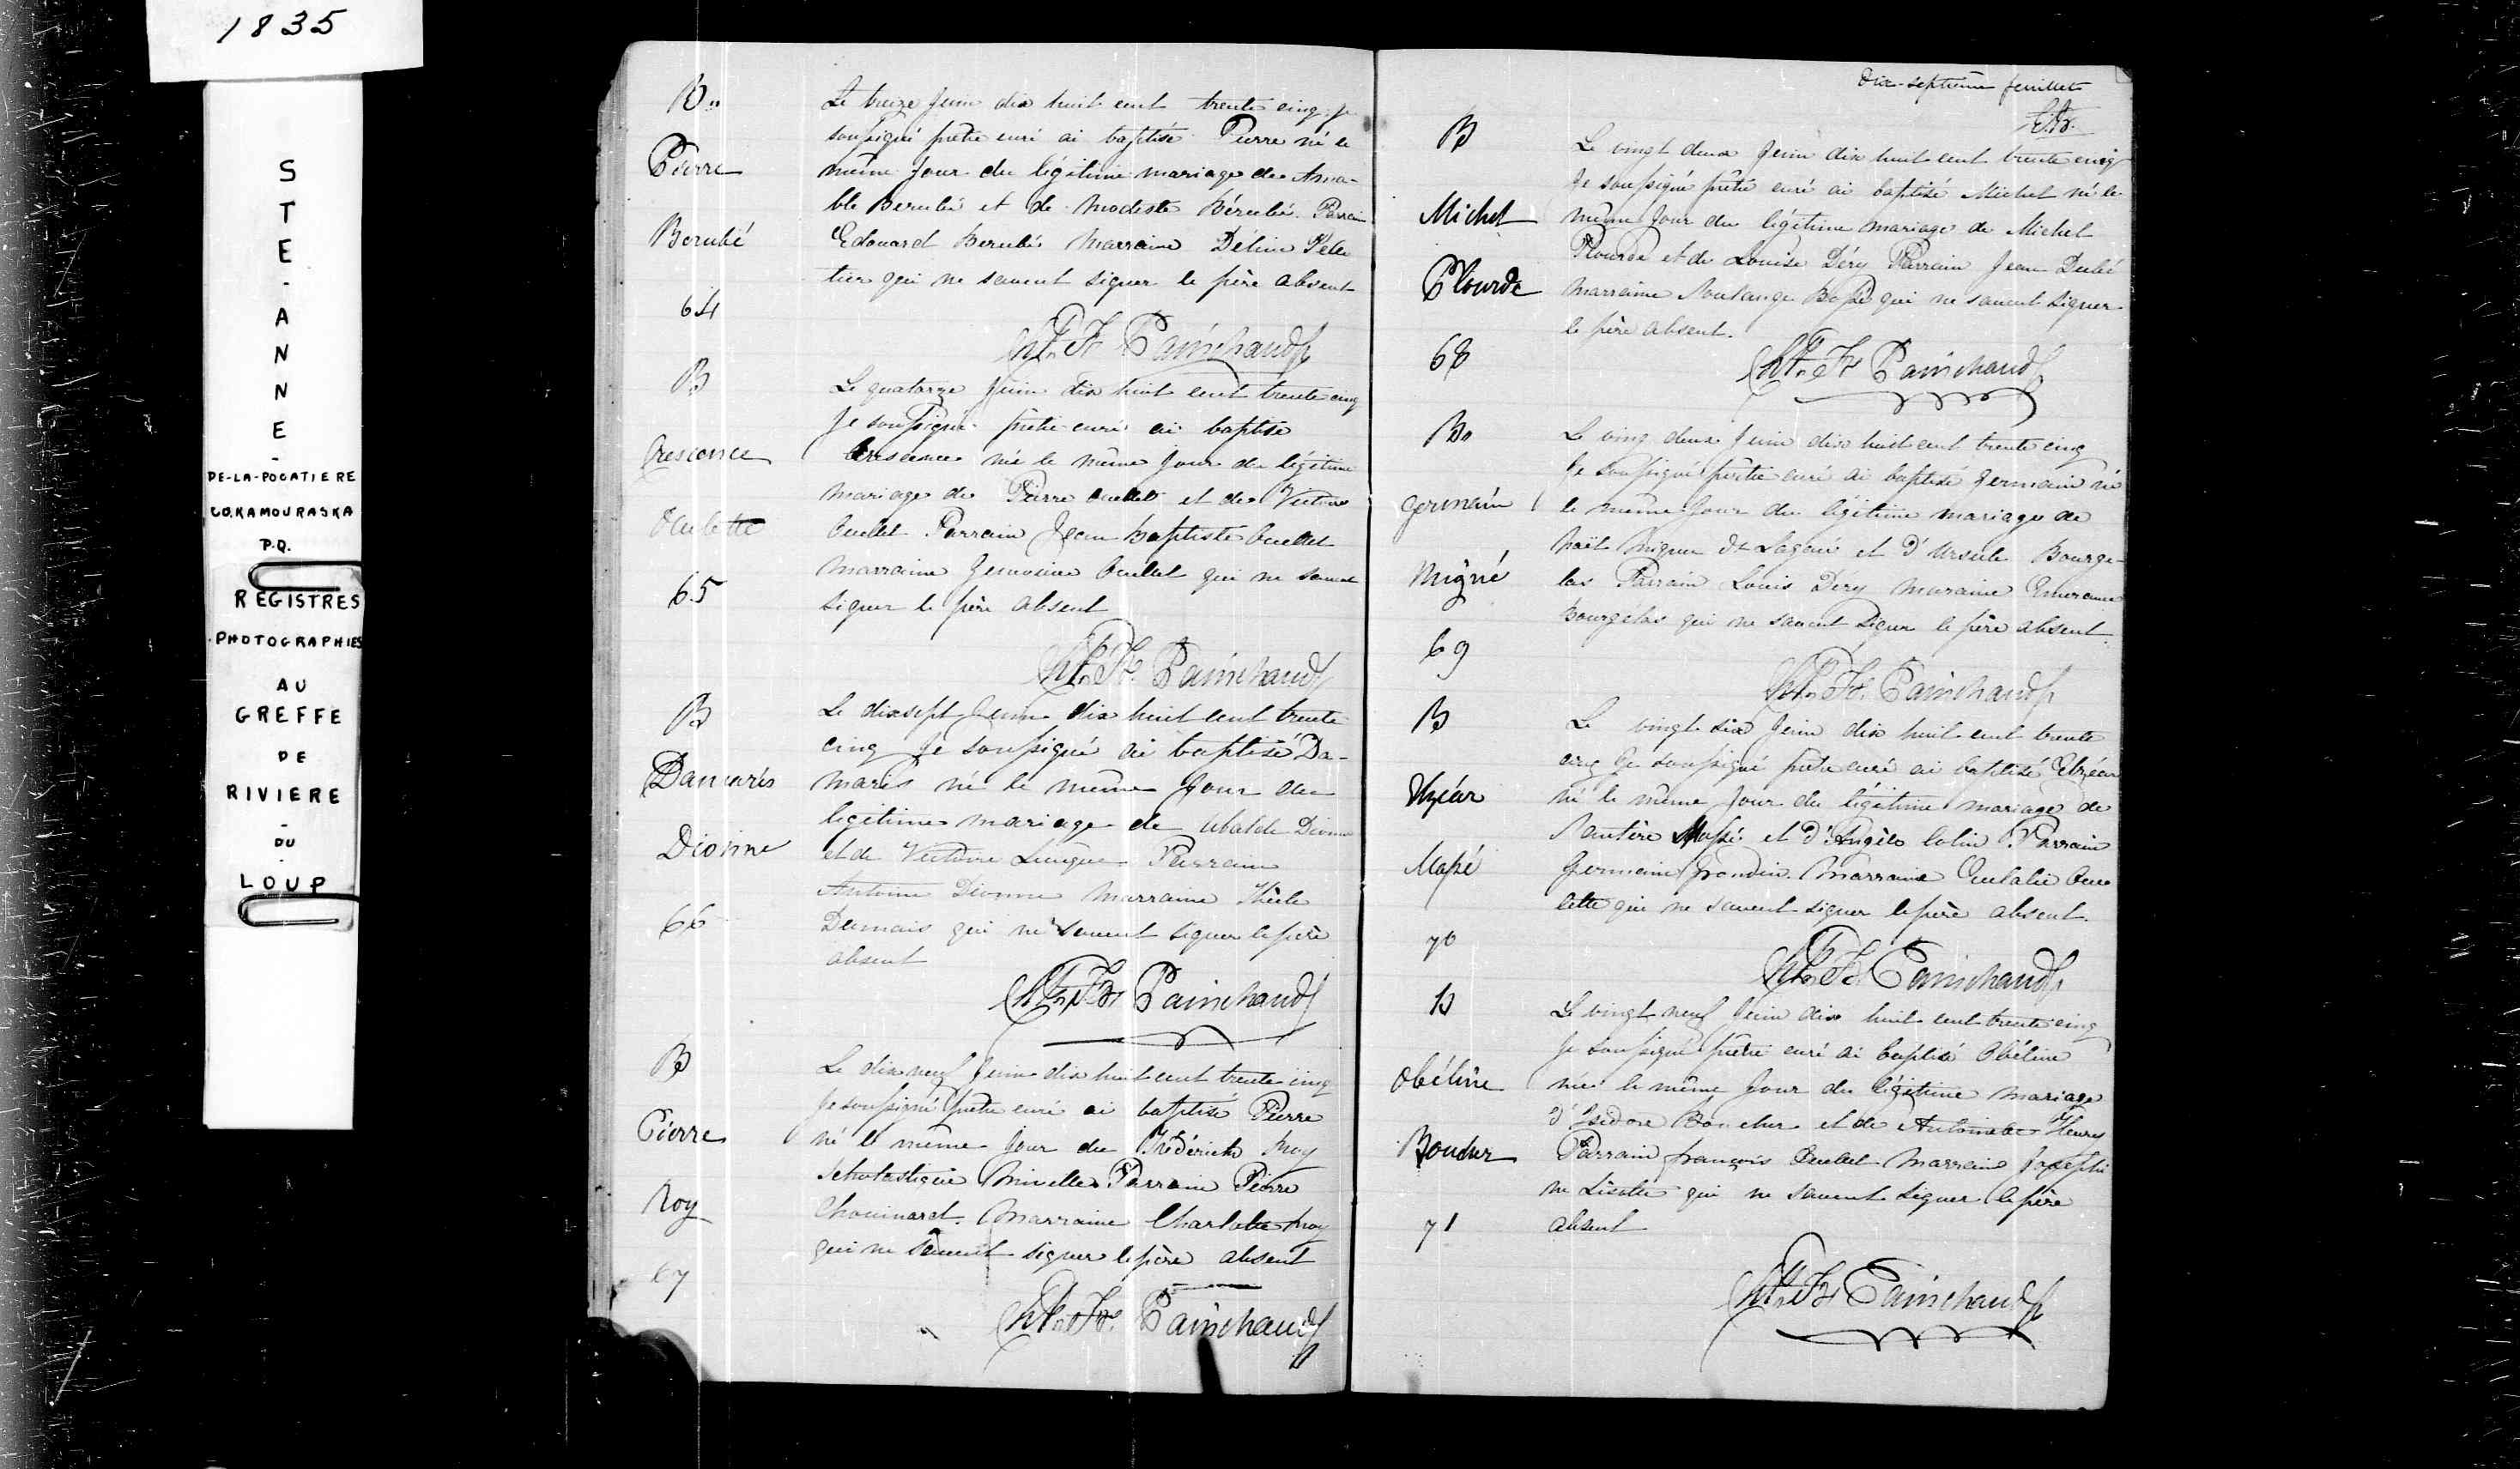 1835
STE-ANNE-
DE-LA-POCATIERE
CO. KAMOURASKA
P.Q.
REGISTRES
PHOTOGRAPHIES
AU
GREFFE
DE
RIVIERE
-
DU
LOUP
B
Pierre
Berubé
64
Le treize Juin dix huit cent trente cinq je
soussigné prêtre curé ai baptisé Pierre né le
même jour du légitime mariage de Ama-
ble Berubé et de Modeste Bérubé Parrain
Edouard Berubé Marraine Déline Pelle
tier qui ne savent signer le père absent
Chs. Frs. Painchaud
B
Crescence
Oulette
65
Le quatorze Juin dix huit cent trente cinq
Je soussigné prêtre curé ai baptisé
Crescence née le même jour du légitime
mariage de Pierre Ouellet et de Victoire
Ouellet Parrain Jean Baptiste Ouellet
Marraine Genevieve Ouellet qui ne savent
signer le père absent
Chs. Frs. Painchaud
B
Damaris
Dionne
66
Le dixsept Juin dix huit cent trente
cinq Je soussigné ai baptisé Da-
maris né le même jour du
legitime mariage de Ubalde Dionne
et de Victoire Parrain
Antoine Dionne Marraine Thècle
Damais qui ne savent signer le père
absent
Chs. Frs. Painchaud
B
Pierre
Roy
67
Le dix neuf Juin dix huit cent trente cinq
Je soussigné prêtre curé ai baptisé Pierre
né le même jour du Fréderick Roy
Scholastique Miville Parrain Pierre
Chouinard. Marraine Charlotte Roy
qui ne savent signer le père absent
Chs. Frs. Painchaud
Dix-septième feuillet
B
Michel
Plourde
68
Le vingt deux Juin dix huit cent trente cinq
Je soussigné prêtre curé ai baptisé Michel né le
même jour du légitime mariage de Michel
Plourde et de Louise Déry Parrain Jean Dubé
Marraine Soulange Bossé qui ne savent signer
le père absent.
Chs. Frs. Painchaud
B
Germain
Migné
69
Le ving deux Juin dix huit cent trente cinq
Je soussigné prêtre curé ai baptisé Germain né
le même jour du légitime mariage de
Noël Mignier dt Lagacé et d'Ursule Bourge-
las Parrain Louis Dery Maraine Emerance
Bourgelas qui ne savent signer le père absent.
Chs. Frs. Painchaud
B
Elzéar
Massé
70
Le vingt six Juin dix huit cent trente
cinq Je soussigné prêtre curé ai baptisé Elzéar
né le même jour du légitime mariage de
Massé et d'Angèle Colin Parrain
Germain Grondin. Marraine Eulalie Oue
lette qui ne savent signer le père absent.
Chs. Frs. Painchaud
B
Obéline
Boucher
71
Le vingt neuf Juin dix huit cent trente cinq
Je soussigné prêtre curé ai baptisé Obéline
née le même jour du légitime mariage
d'Isidore Boucher et de Antoinette Fleury
Parrain françois Ouellet Marraine Josephi
ne Lisotte qui ne savent signer le père
absent
Chs. Frs. Painchaud